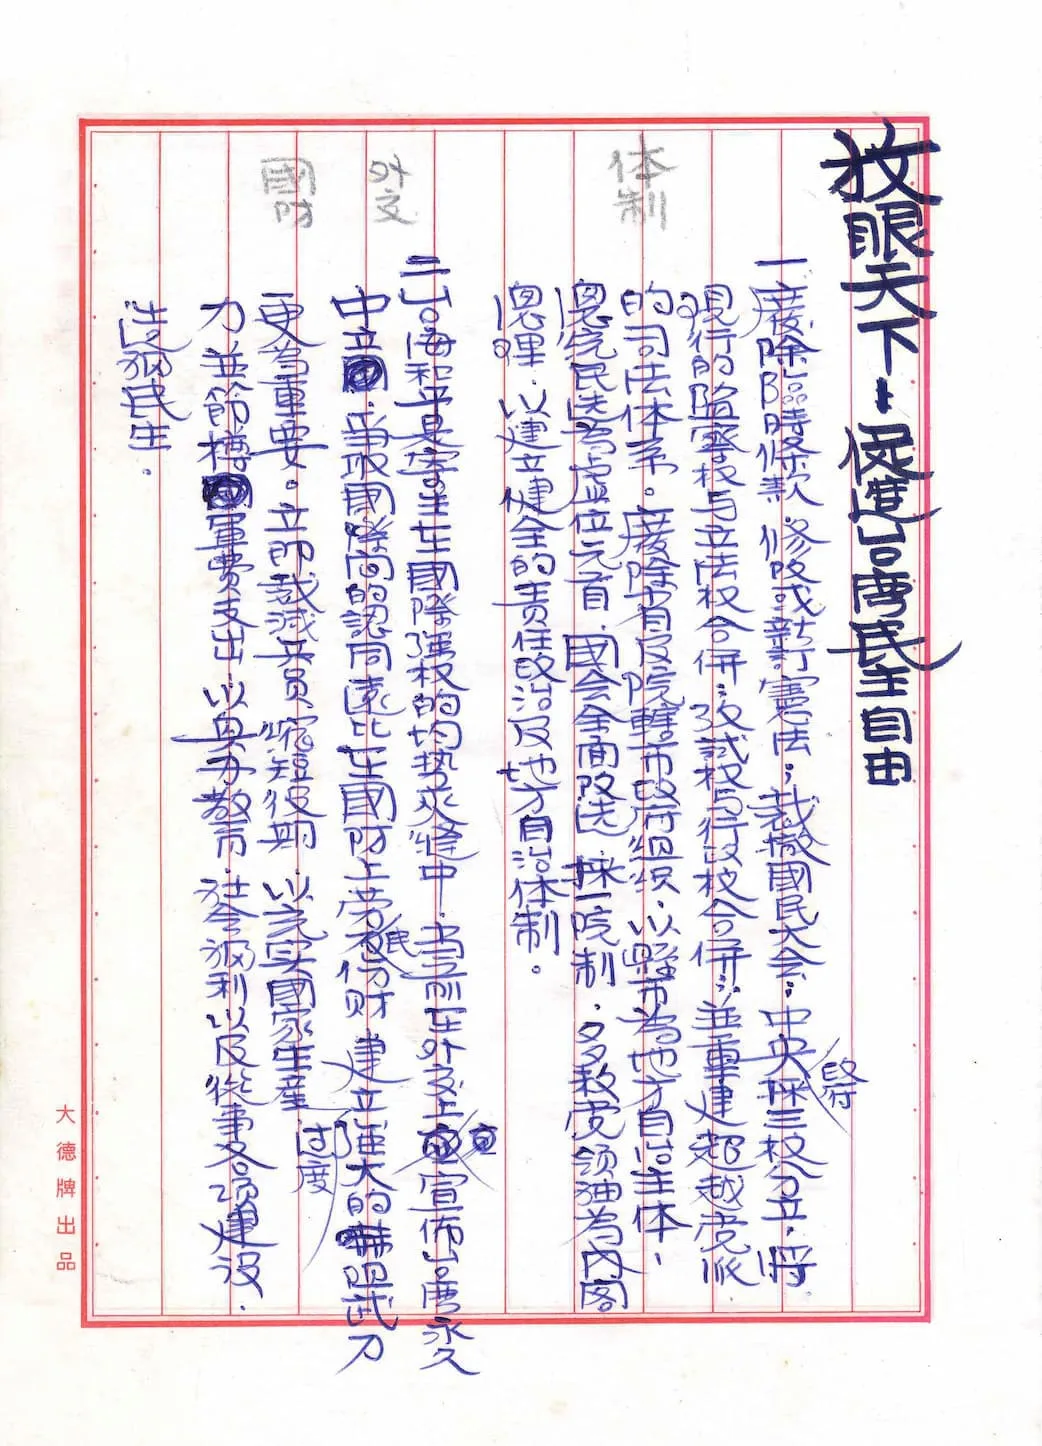 放眼天下－促進台湾民主自由
体制
一廢除臨時條款．修改或新訂憲法；裁撤國民大会；中央政府採三权分立，将
現行的監察权与立法权合併；考試权与行政权合併；並重建超越党派
的司法体系。廢除省及院轄市政府組织．以縣市為地方自治主体，
總统民选為虚位元首．國会全面改选 採一院制．多数党领袖為内阁
總理．以建立健全的責任政治及地方自治体制。
外交
二台海和平是寄生在國際强权的均势夾縫中．当前在外交上宣佈台湾永久
中立．爭取國際间的認同遠比在國防上劳民伤财 建立过度強大的嚇阻武力
國防
更為重要。立即裁減兵員 縮短役期 以充实國家生産
力並節樽軍費支出 以興办教育．社会福利以及從事各項建设．
造福民生．
大德牌出品